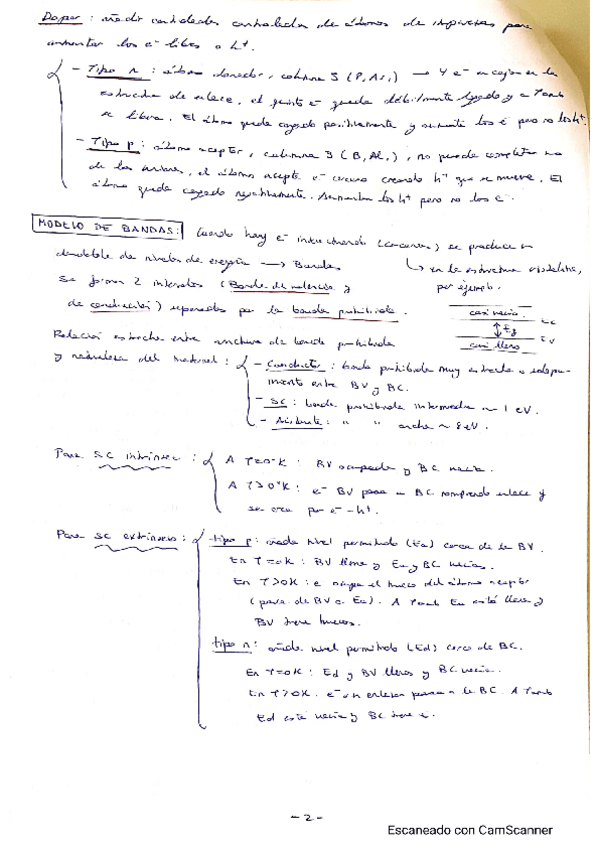 Dopar: añadir cantidades controladas de átomos de impurezas para
aumentar los e⁻ libres o h⁺.
- Tipo n: átomo donador, columna 5 (P, As,) → 4 e⁻ encajan en la
estructura de enlace, el quinto e⁻ queda débilmente ligado y a Tamb
se libera. El átomo queda cargado positivamente y aumenta los e⁻ pero no los h⁺.
- Tipo p: átomo aceptor, columna 3 (B, Al,), no puede completar uno
de los enlaces, el átomo acepta e⁻ cercano creando h⁺ que se mueve. El
átomo queda cargado negativamente. Aumentan los h⁺ pero no los e⁻.
MODELO DE BANDAS: Cuando hay e⁻ interactuando (cercanos) se produce un
desdoble de niveles de energía → Bandas
↳ en la estructura cristalina,
por ejemplo.
Se forman 2 intervalos (Banda de valencia y
de conducción) separados por la banda prohibida.
casi vacía
Ec
Eg
Ev
casi llena
Relación estrecha entre anchura de banda prohibida
y naturaleza del material:
- Conductor: banda prohibida muy estrecha o solapa-
miento entre BV y BC.
- SC: banda prohibida intermedia ~ 1 eV.
- Aislante: " " ancha ~ 8 eV.
Para SC intrínseco:
A T=0°K: BV ocupada y BC vacía.
A T>0°K: e⁻ BV pasa a BC rompiendo enlace y
se crea par e⁻-h⁺.
Para SC extrínseco:
- tipo p: añade nivel permitido (Ea) cerca de la BV.
En T=0K: BV llena y Ea y BC vacías.
En T>0K: e⁻ ocupa el hueco del átomo aceptor
(pasa de BV a Ea). A Tamb Ea está llena y
BV tiene huecos.
tipo n: añade nivel permitido (Ed) cerca de BC.
En T=0K: Ed y BV llenos y BC vacía.
En T>0K: e⁻ sin enlazar pasan a la BC. A Tamb
Ed está vacía y BC tiene e⁻.
- 2 -
Escaneado con CamScanner